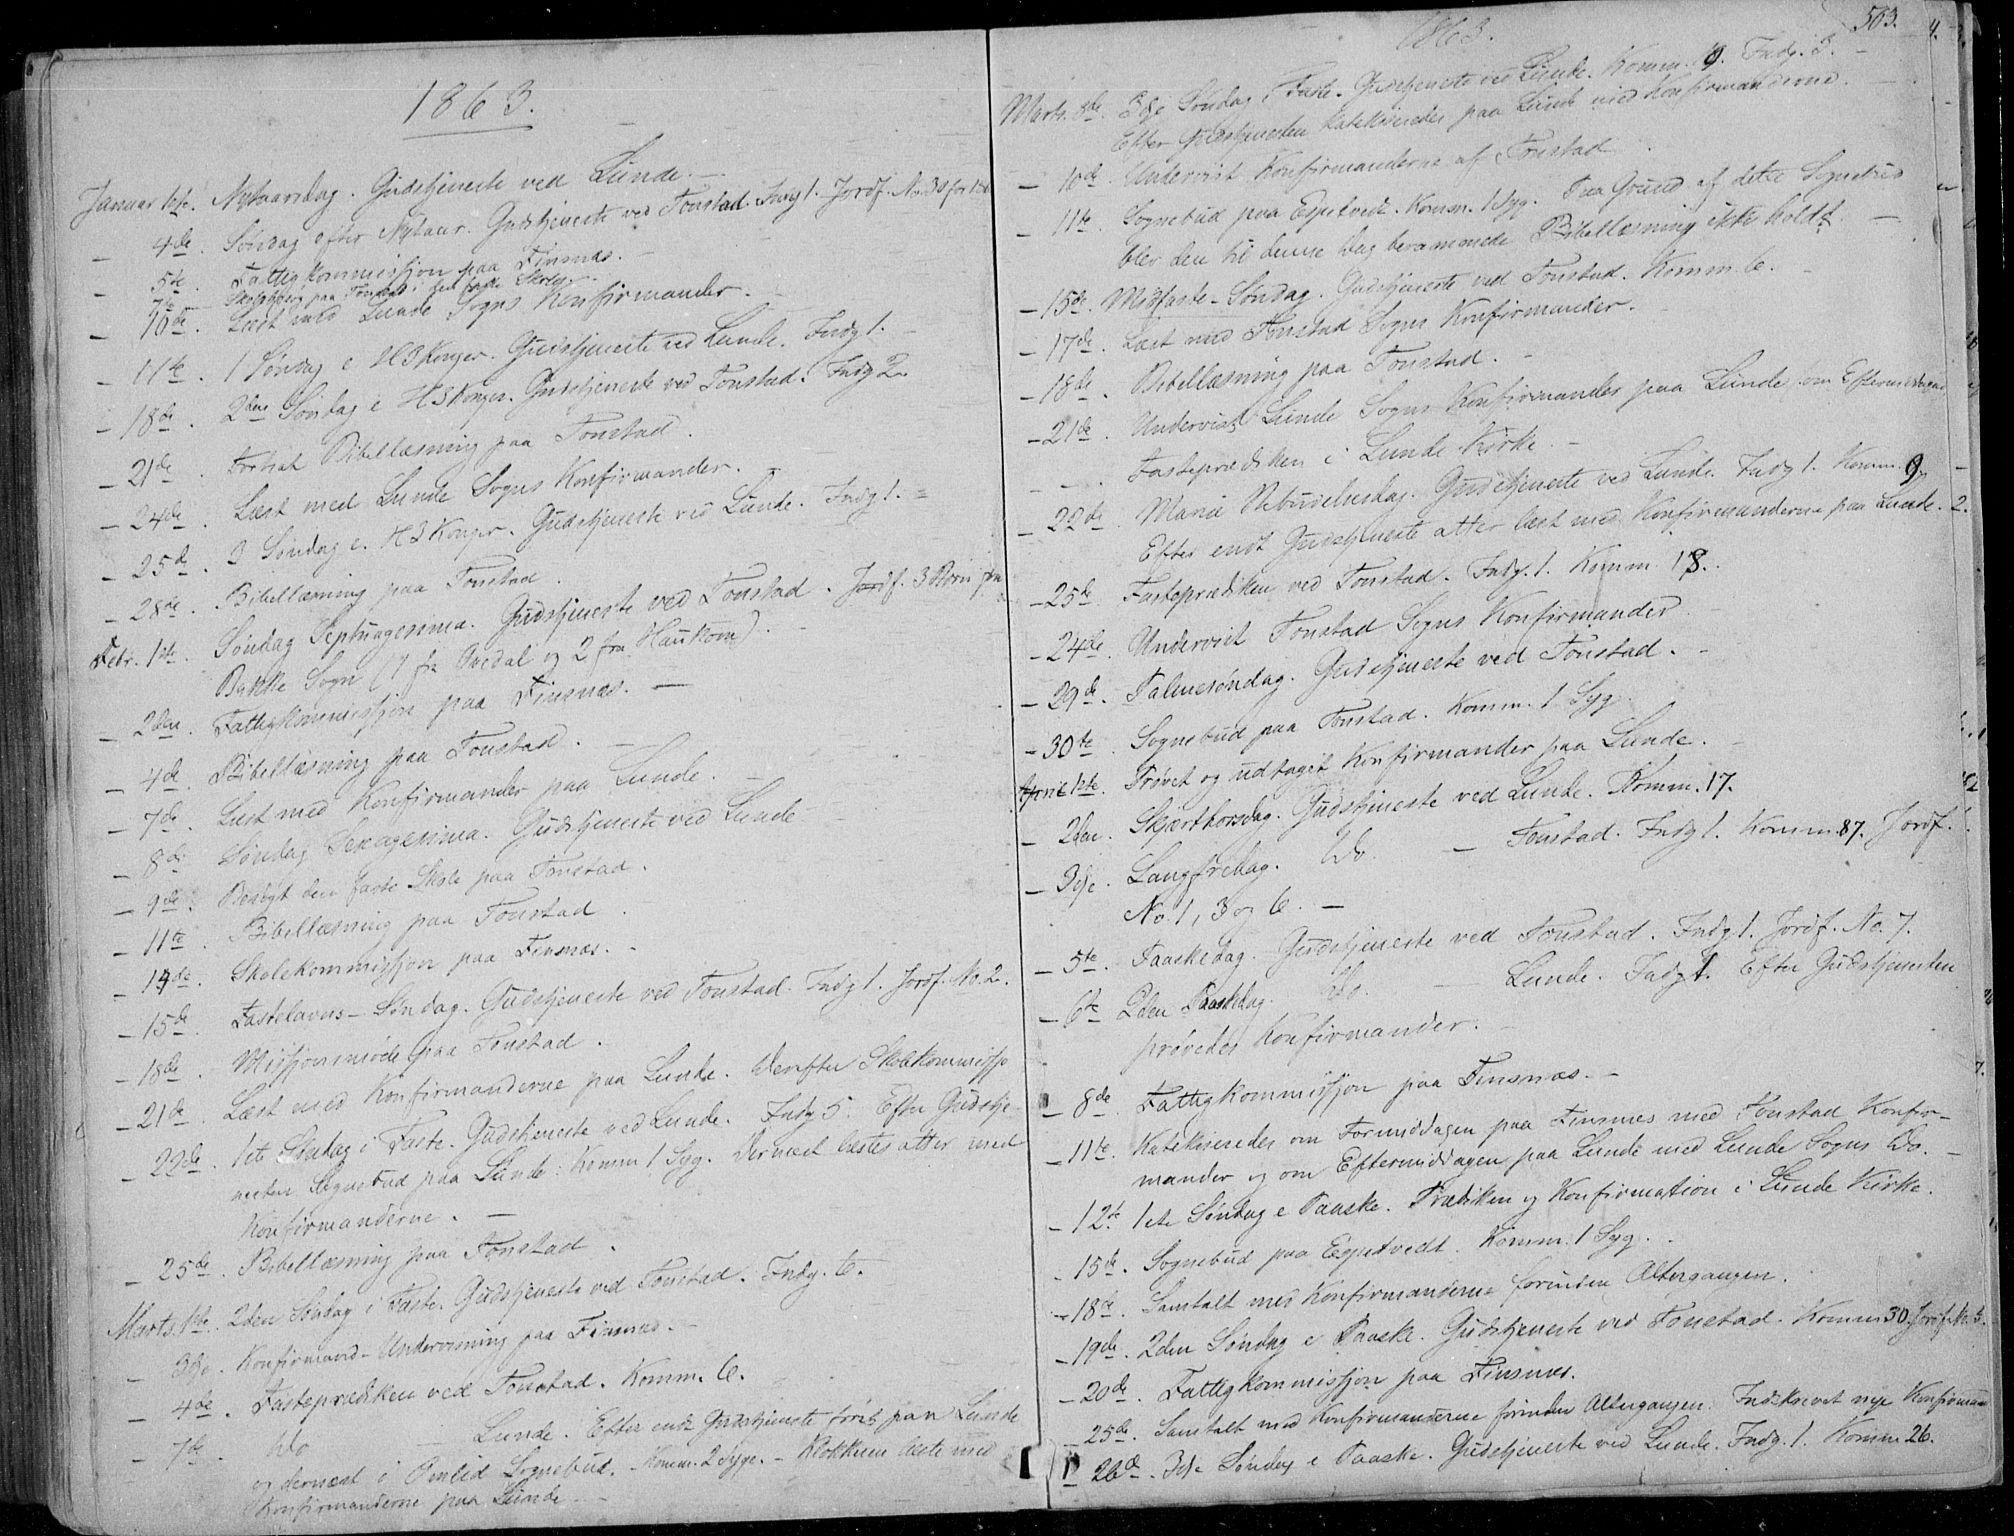 1863.
Januar 1ste. Nytaarsdag. Gudstjeneste ved Lunde. —
— 4de. Søndag efter Nytaar. Gudstjeneste ved Tonstad. Indg 1. Jordf. No. 30 for 186
— 5te. Fattigkommissjon paa Finsnæs. —
— 7de Skolebesøg paa Tonstad i den faste Skole. —
— 10de. Læst med Lunde Sogns Konfirmander. —
— 11te. 1 Søndag e H3Konger. Gudstjeneste ved Lunde. Indg 1. —
— 18de. 2den Søndag e H3Konger. Gudstjeneste ved Tonstad. Indg 2.
— 21de. Fortsat Bibellæsning paa Tonstad.
— 24de. Læst med Lunde Sogns Konfirmander. —
— 25de. 3 Søndag e. H3Konger. Gudstjeneste ved Lunde. Indg 1. —
— 28de. Bibellæsning paa Tonstad.
Febr. 1ste. Søndag Septuagesima. Gudstjeneste ved Tonstad. Jordf. 3 Børn fra
Bakke Sogn (1 fr Øvedal og 2 fra Haukom). —
— 2den. Fattigkommissjon paa Finsnæs. —
— 4de. Bibellæsning paa Tonstad. —
— 7de. Læst med Konfirmander paa Lunde. —
— 8de. Søndag Sexagesima. Gudstjeneste ved Lunde —
— 9de. Besøgt den faste Skole paa Tonstad.
— 11te. Bibellæsning paa Tonstad.
— 14de. Skolekommissjon paa Finsnæs. —
— 15de. Fastelavns-Søndag. Gudstjeneste ved Tonstad. Indg 1. Jordf. No. 2.
— 18de. Missjonsmøde paa Tonstad.
— 21de. Læst med Konfirmanderne paa Lunde. Derefter Skolekommissjo
— 22de. 1ste Søndag i Faste. Gudstjeneste ved Lunde. Indg 5. Efter Gudstje-
nesten Sognebud paa Lunde: Komm 1 Syg. Dernæst læstes atter med
Konfirmanderne. —
— 25de. Bibellæsning paa Tonstad.
Marts. 1ste. 2den Søndag i Faste. Gudstjeneste ved Tonstad. Indg. 6.
— 3die. Konfirmand-Undervisning paa Finsnæs. —
— 4de. Fasteprædiken ved Tonstad. Komm. 6.
— 7de. Do — Lunde. Efter endt Gudstjeneste først paa Lunde
og dernæst i Omlid Sognebud. — Komm. 2 Syge. — Klokkeren læste med
Konfirmanderne paa Lunde. —
1863.
503.
Marts. 8de. 3die Søndag i Faste. Gudstjeneste ved Lunde. Komm. 9. Indg. 3. —
Efter Gudstjenesten katekiseredes paa Lunde med Konfirmanderne. —
— 10de. Undervist Konfirmanderne af Tonstad.
— 11te. Sognebud paa Espetvedt. Komm. 1 Syg. Paa Grund af dette Sognebud
blev den til denne Dag berammede Bibellæsning ikke holdt. —
— 15de. Midfaste-Søndag. Gudstjeneste ved Tonstad. Komm. 6. —
— 17de. Læst med Tonstad Sogns Konfirmander. —
— 18de. Bibellæsning paa Tonstad. —
— 21de. Undervist Lunde Sogns Konfirmander paa Lunde, om Eftermiddagen
— — Fasteprædiken i Lunde Kirke. —
— 22de. Mariæ Bebudelsesdag. Gudstjeneste ved Lunde. Indg 1. Komm. 9.
Efter endt Gudstjeneste atter læst med Konfirmanderne paa Lunde. 2.
— 25de. Fasteprædiken ved Tonstad. Indg. 1. Komm. 18.
— 24de. Undervist Tonstad Sogns Konfirmander
— 29de. Palmesøndag. Gudstjeneste ved Tonstad. —
— 30te. Sognebud paa Tonstad. Komm. 1 Syg
April 1ste. Prøvet og udtaget Konfirmander paa Lunde. —
— 2den. Skjærthorsdag. Gudstjeneste ved Lunde. Komm. 17.
— 3die. Langfredag. Do. — Tonstad. Indg 1. Komm. 87. Jordf.
No. 1, 3 og 6. —
— 5te. Paaskedag. Gudstjeneste ved Tonstad. Indg 1. Jordf. No. 7.
— 6te. 2den Paaskedag. Do. — Lunde. Indg 1. Efter Gudstjenesten
prøvedes Konfirmander. —
— 8de. Fattigkommissjon paa Finsnæs. —
— 11te. Katekiseredes om Formiddagen paa Finsnæs med Tonstad Konfir-
mander og om Eftermiddagen paa Lunde med Lunde Sogns Do. —
— 12te. 1ste Søndag e Paaske. Prædiken og Konfirmation i Lunde Kirke.
— 15de. Sognebud paa Espetvedt. Komm. 1 Syg. .
— 18de. Samtalt med Konfirmanderne forinden Altergangen.
— 19de. 2den Søndag e Paaske. Gudstjeneste ved Tonstad. Komm 30. Jordf. No. 5.
— 20de. Fattigkommissjon paa Finsnæs.
— 25de. Samtalt med Konfirmanderne forinden Altergangen. Indskrevet nye Konfirman
— 26de. 3die Søndag e Paaske. Gudstjeneste ved Lunde. Indg. 1. Komm 26.